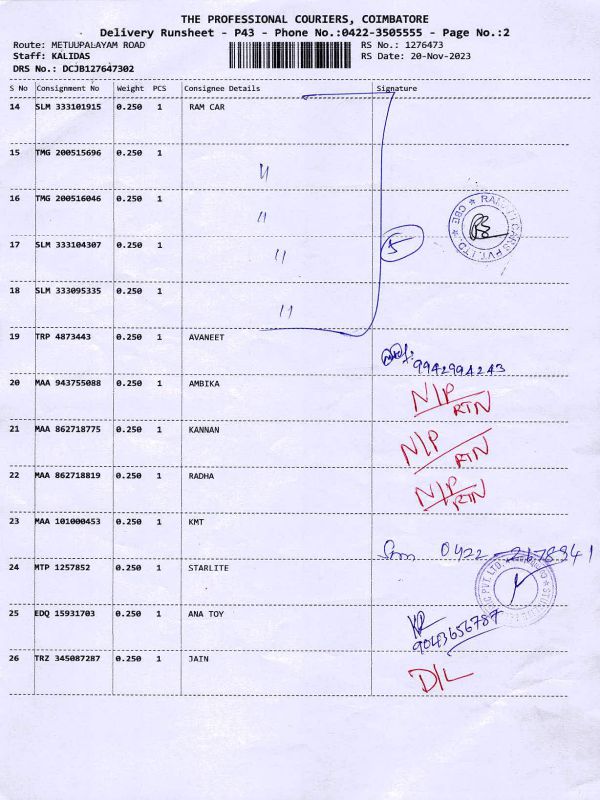 THE PROFESSIONAL COURIERS, COIMBATORE
Delivery Runsheet - P43 - Phone No.:0422-3505555 - Page No.:2
Route: METUUPALAYAM ROAD RS No.: 1276473
Staff: KALIDAS RS Date: 20-Nov-2023
DRS No.: DCJB127647302
S No Consignment No Weight PCS Consignee Details Signature
14 SLM 333101915 0.250 1 RAM CAR
15 TMG 200515696 0.250 1
〃
16 TMG 200516046 0.250 1
〃
17 SLM 333104307 0.250 1 5
〃
18 SLM 333095335 0.250 1
〃
19 TRP 4873443 0.250 1 AVANEET
9942994243
20 MAA 943755088 0.250 1 AMBIKA N/P
RTN
21 MAA 862718775 0.250 1 KANNAN N/P
RTN
22 MAA 862718819 0.250 1 RADHA N/P
RTN
23 MAA 101000453 0.250 1 KMT
0422
24 MTP 1257852 0.250 1 STARLITE
25 EDQ 15931703 0.250 1 ANA TOY
9043656787
26 TRZ 345087287 0.250 1 JAIN D/L